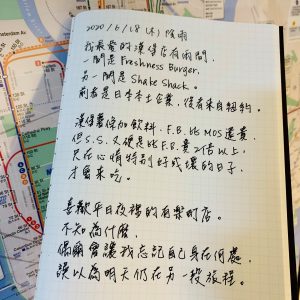 2020/6/18 (木) 陰雨
我最愛的漢堡店有兩間
一間是 Freshness Burger,
另一間是 Shake Shack。
前者是日本本土企業,沒有來到紐約。
漢堡薯條加飲料,F.B. 比 MOS 還貴
但 S.S. 又硬是比 F.B. 貴2倍以上,
只在心情特別好或壞的日子
才會來吃。
喜歡平日夜裡的有樂町店。
不知為什麼
偶爾會讓我忘記自己身在何處,
誤以為明天仍在另一段旅程。